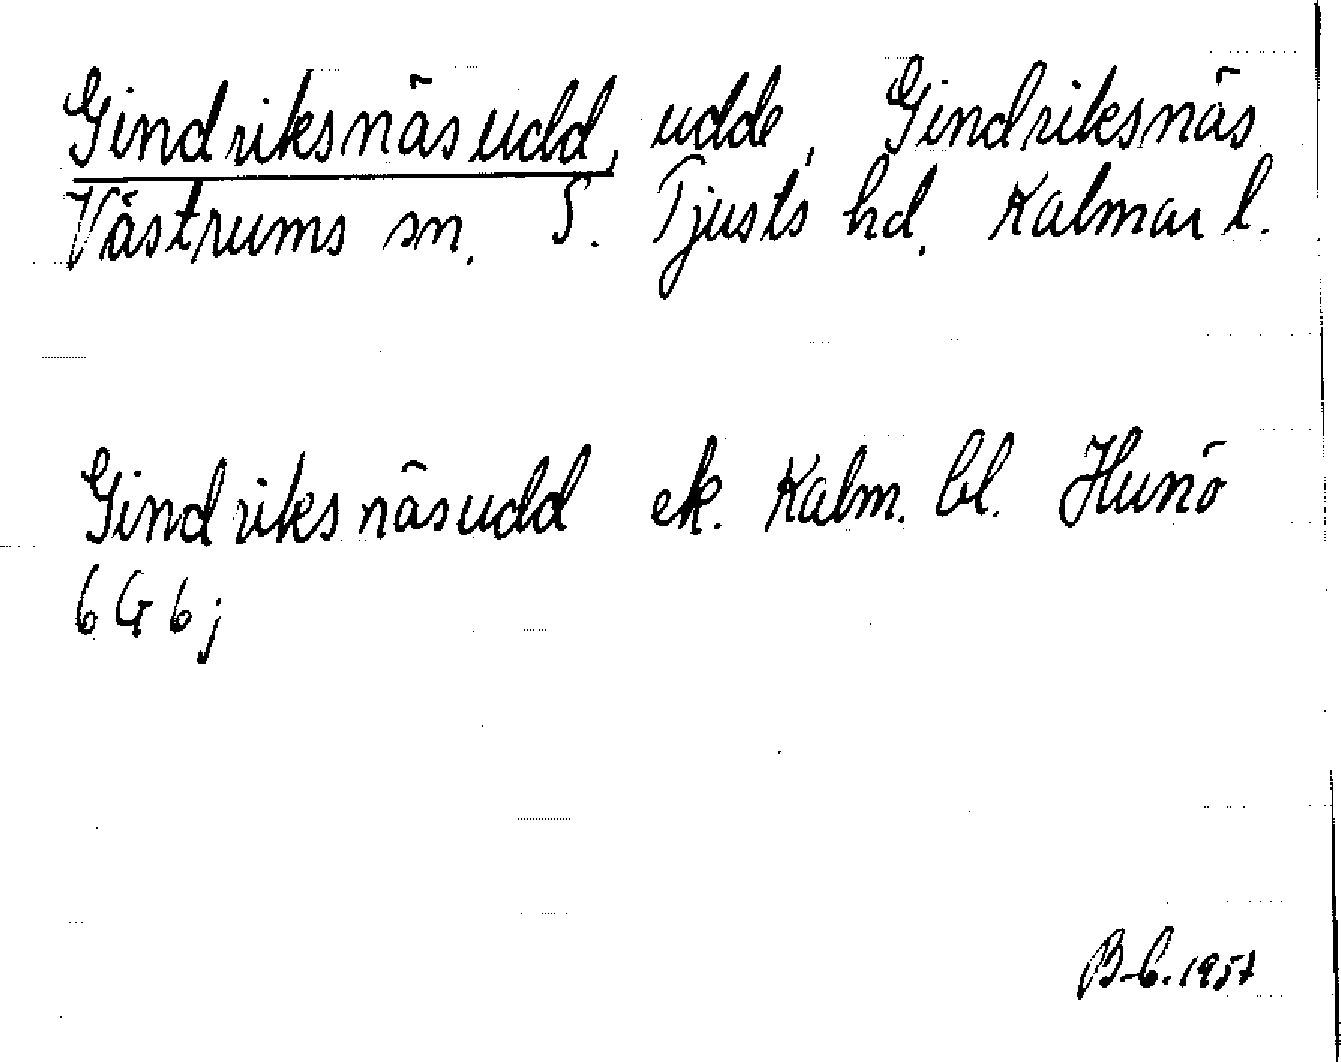 Gindriksnäsudd, udde, Gindriksnäs
Västrums sn. S. Tjusts hd. Kalmar l.
Gindriksnäsudd ek. Kalm. bl. Hunö
6G6j
B-b. 1957